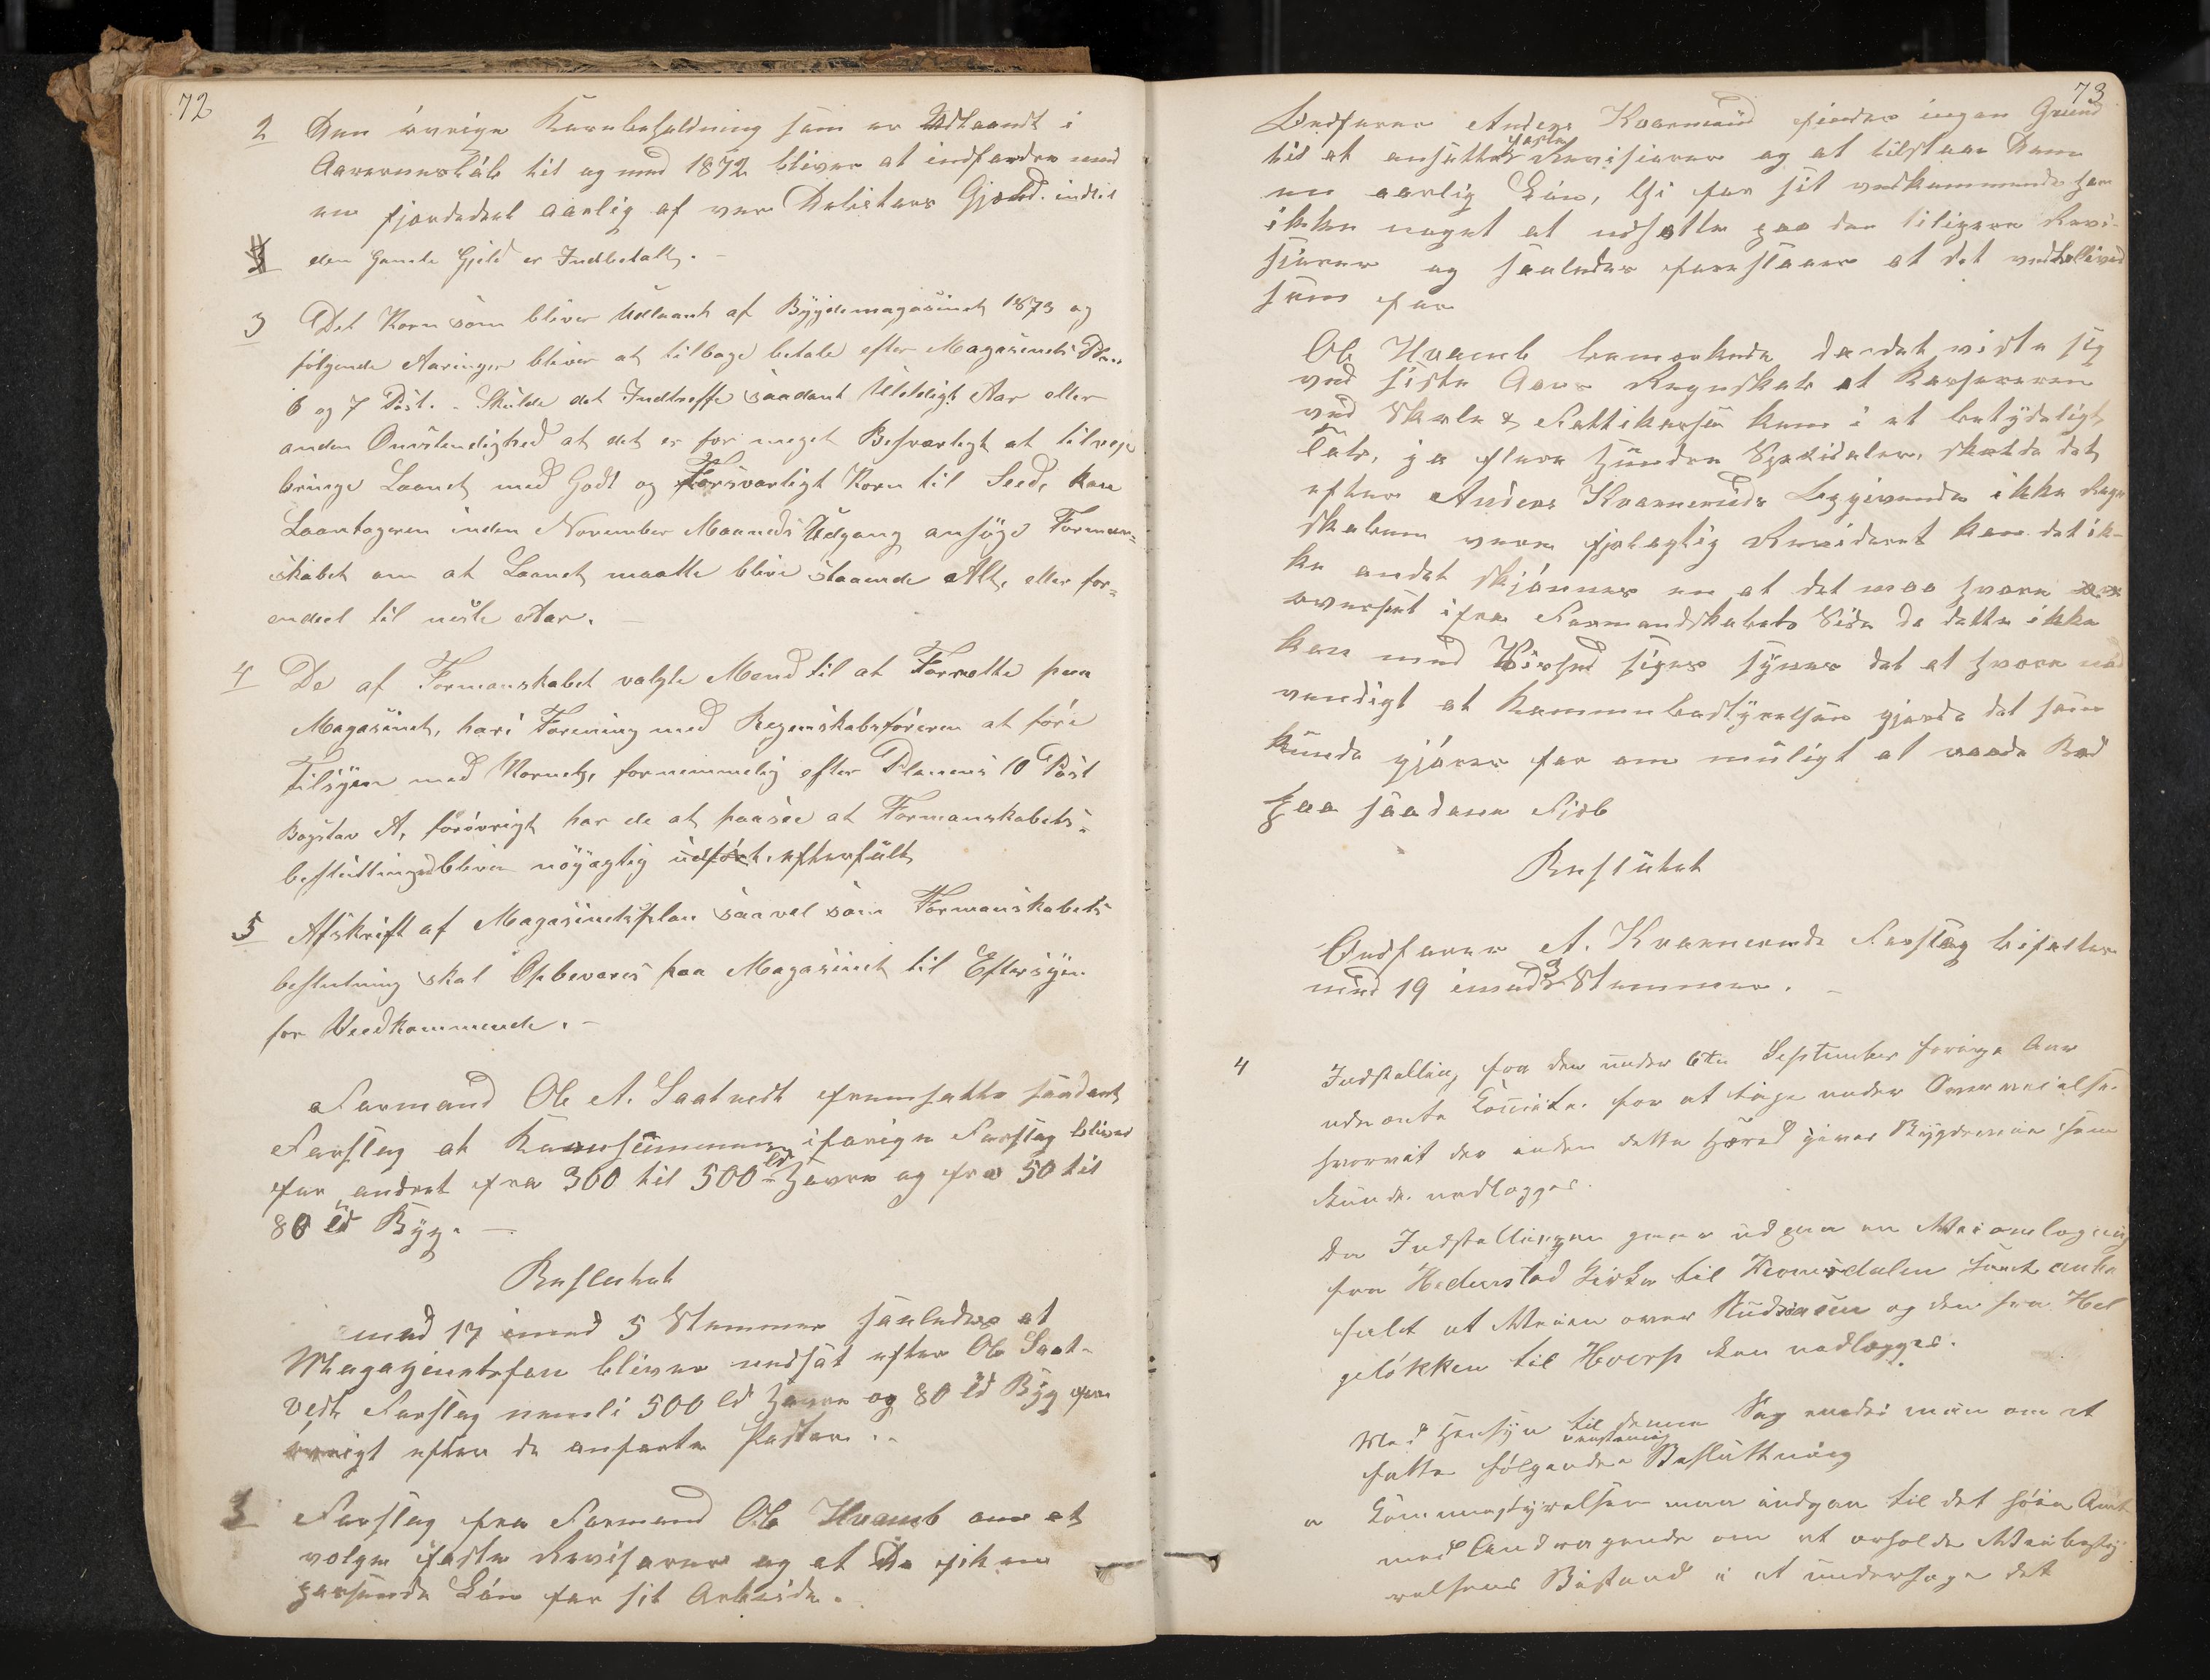 72
2 Den övrige Kornbeholdning som er Udlaandt i
Aarernes Löb til og med 1872 bliver at indfordre med
en fjerdedeel aarlig af vær Debitors Gjæld. indtil
den Hænte Gjeld er Indbetalt. -
3 Det Korn som bliver Udlaant af Bygdemagasinet 1873 og
følgende Aaringer bliver at tilbage betale efter Magasinets Plan
6 og 7 Post. - Skulde det Indtreffe saadant Uheldigt Aar eller
anden Omstendighed at det er for meget Besværligt at tilveje
bringe Laanet med Godt og Forsvarligt Korn til Seed, kan
Laantageren inden November Maaneds Udgang ansöge Forman=
skabet om at Laanet maatte blive staaende Alt, eller for=
endeel til neste Aar. -
4 De af Formanskabet valgte Mend til at Forrette paa
Magasinet, har i Forening med Regenskabsföreren at före
Tilsyn med Kornet, fornemmelig efter Planens 10 Post
Bogstav A, forövrigt har de at paasee at Formanskabets=
beslutninger bliver nöyagtig udført. efterfült
5 Afskrift af Magasinetsplan saavel som Formanskabets
beslutning skal Opbevares paa Magasinet til Eftersyn
for Veedkommende. -
Formand Ole A. Saatvedt fremsatte saadant
Forslag at Kornsummen i forige Forslag bliver
for andret fra 360 til 500 Ld Havre og fra 50 til
80 Ld Byg. -
Besluttet
med 17 imod 5 Stemmer saaledes at
Magazinetsfon bliver nedsat efter Ole Saat-
vedt Forslag nemli 500 Ld Havre og 80 Ld Byg for
övrigt efter de anførte Poster. -
3 Forslag fra Formand Ole Hvamb om at
volge faste Revisorer og at De fik en
passende Lön for sit Arbeide.
73
Ordfører Anders Kvarnerud finder ingen Grund
til at ansætte faste Revisiorer og at tilstaae Dem
en aarlig Lön, thi for sit vedkommende har
ikke noget at udsætte paa de tiligere Revi-
siorer og saaledes foreslaaer at det vedbliver
som før
Ole Hvamb bemærkede da det viste sig
ved siste Aars Regnskab at Kassereren
ved Skole & Fattikassen kom i et betydeligt
Tab, ja flere Hundre Speciedaler, skulde det
efter Anders Kvarneruds Opgivende ikke Regn
skaberne være fjelagtig Revideret kan det ik-
ke andet skjönnes en at det maa hvare
overseet ifra Formandskabets Side da dette ikke
kan med Vished siges synes det at hvare nöd
vendigt at Kommunebestyrelsen gjorde det som
kunde gjöres for om muligt at raade Bod
paa saadane Fjeb
Besluttet
Ordfører A. Kvarneruds Forslag bifaltes
med 19 imod 3 Stemmer. -
4 Indstilling fra den under 6te September forige Aar
udnevnte Comite. for at tage under Overveielse
hvorvit der inden dette Hered gives Bygdeveie som
kunde nedlægges.
Da Indstillingen gaar ud paa en Veiomlegning
fra Hedenstad Kirke til Jonsdalen samt anbe
falet at Veien over Rudsaasen og den fra Hel
gelökken til Hvarp kan nedlægges.
Med Hensyn til denne Sag enedes man om at
fatte følgende enstemig Besluttning
a Communestyrelsen maa indgaa til det höie Amt
med Andragende om at erholde Veibesty
relsens Bistand i at undersøge det